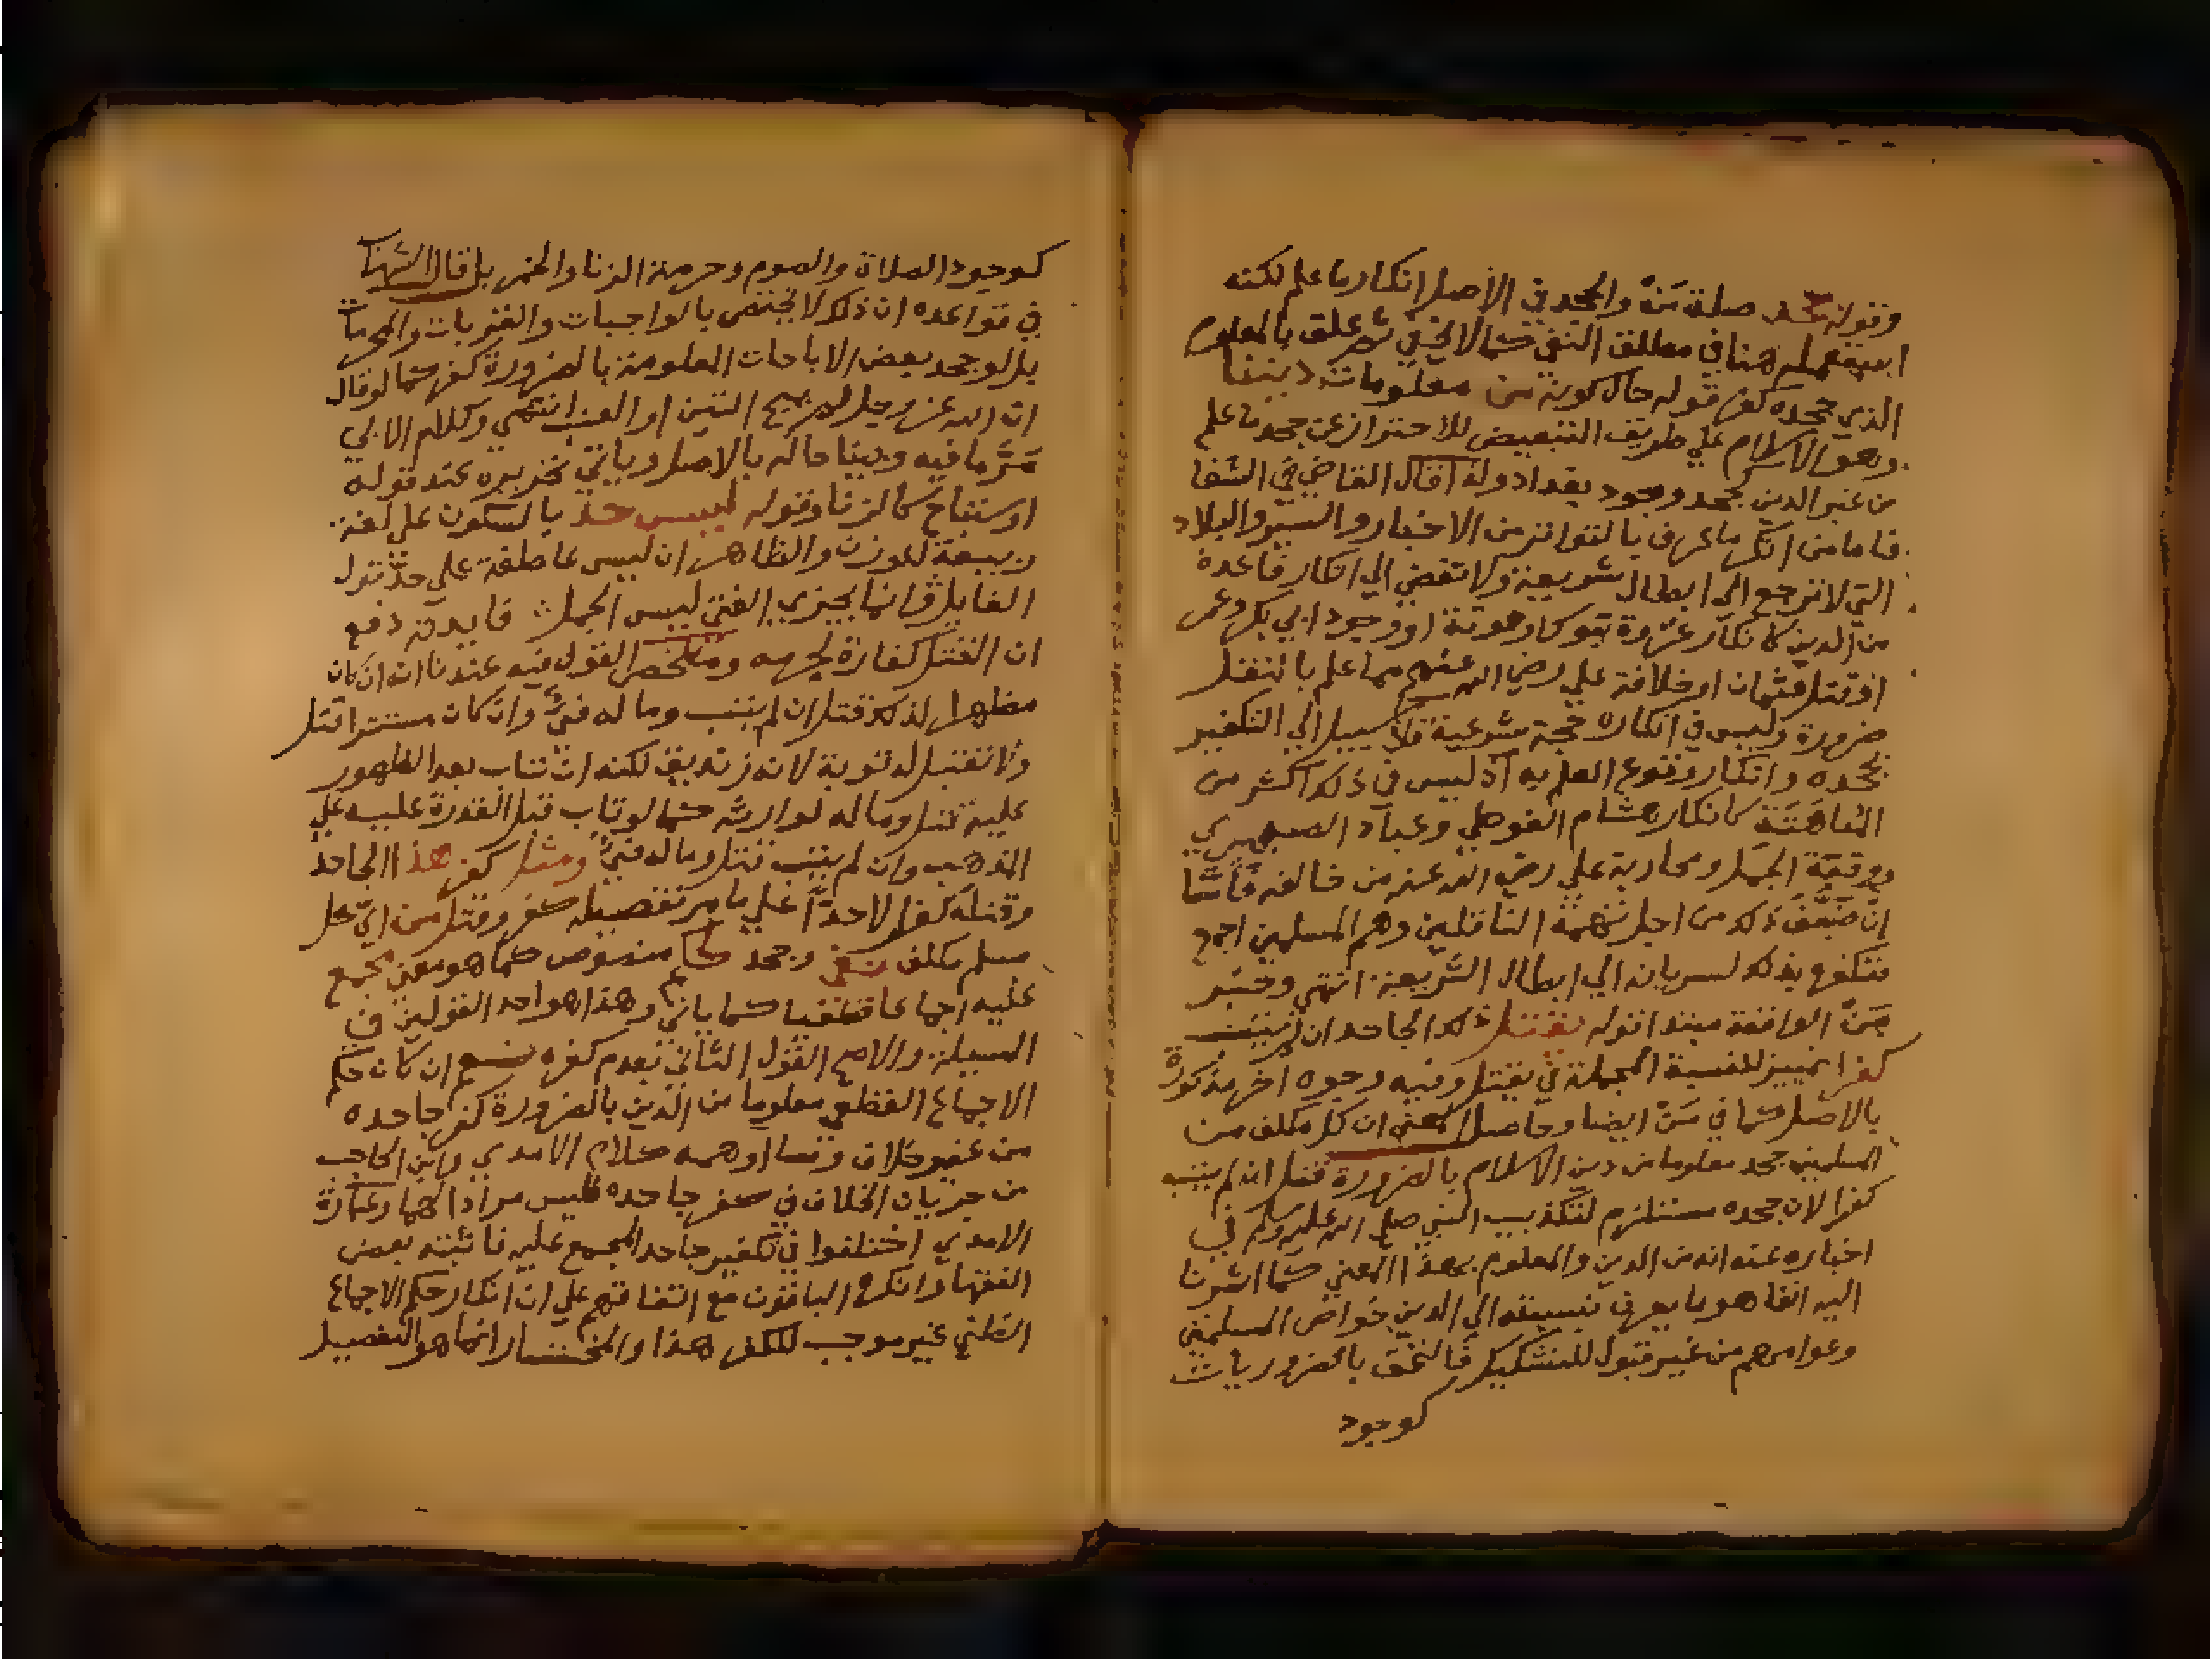 وقوله جحد صلة من والجحد في الاصل انكار ما علم لكنه
استعمله هنا في مطلق النفي كما لا يخفي ثم علق بالمعلوم
الذي جحده كفر قوله حال كونه من معلومات ديننا
وهو الاسلام علي طريق التبعيض للاحتراز عن جحد ما علم
من غير الدين كجحد وجود بغداد ولذا قال القاضي في الشفا
فاما من انكر ما عرف بالتواتر من الاخبار والسير والبلاد
التي لا ترجع الي ابطال شريعة ولا تفضي الي انكار قاعدة
من الدين كانكار غزوة تبوك او موتة او وجود ابي بكر وعمر
او قتل عثمان او خلافة علي رضي الله عنهم مما علم بالنقل
ضرورة وليس في انكاره جحة شرعية فلا سبيل الي التكفير
بجحده وانكار وقوع العلم به اذ ليس في ذلك اكثر من
المباهتة كانكار هشام الفوطي وعباد الصيمري
ووقعة الجمل ومحاربة علي رضي الله عنه من خالفه فاما
ان ضعف ذلك من اجل تهمة الناقلين وهم المسلمين اجمع
فنكفره بذلك لسريانه الي ابطال الشريعة انتهي وخبر
من الواقعة مبتدا قوله يقتل ذلك الجاحد ان لم يتب
كفرا تمييز للنسبة المجملة في يقتل وفيه وجوه اخر مذكورة
بالاصل كما في من ايضا وحاصل المعني ان كل مكلف من
المسلمين جحد معلوما من دين الاسلام بالضرورة قتل ان لم يتب
كفرا لان جحده مستلزم لتكذيب النبي صلي الله عليه وسلم في
اخباره عنه انه من الدين والمعلوم بهذا المعني كما اشرنا
اليه انفا هو ما يعرف نسبته الي الدين خواص المسلمين
وعوامهم من غير قبول للتشكيك فالتحق بالضروريات
كوجود
كوجود الصلاة والصوم وحرمة الزنا والخمر بل قال الشهاب
في قواعده ان ذلك لا يختص بالواجبات والقربات والمحرمات
بل لو جحد بعض الاباحات المعلومة بالضرورة كفر كما لو قال
ان الله عز وجل لم يبح التين او العنب انتهي وكلام الابي
ثم ما فيه وبينا حاله بالاصل وياتي تحريره عند قوله
او استباح كالزنا وقوله ليس حد بالسكون علي لغة
ربيعة للوزن والظاهر ان ليس عاطفة علي حد قول
القايل وانما يجزي الفتي ليس الجمل فايدته دفع
ان القتل كفارة لجرمه وملخص القول فيه عندنا انه ان كان
مظهرا لذلك قتل ان لم يتب وماله فيء وان كان مستترا قتل
ولا تقبل له توبة لانه زنديق لكنه ان تاب بعد الظهور
عليه قتل وماله لوارثه كما لو تاب قبل القدرة عليه علي
المذهب وان لم يتب قتل وماله فيء ومثل كفر هذا الجاحد
وقتله كفرا لا حدا علي ما مر تفصيله كفر وقتل من اي كل
مسلم مكلف نفي وجحد حكما منصوص كما هو معني مجمع
عليه اجماعا قطعيا كما ياتي وهذا هو احد القولين في
المسيلة والاصح القول الثاني بعدم كفره نعم ان كان حكم
الاجماع القطعي معلوما من الدين بالضرورة كفر جاحده
من غير خلاف وما اوهمه كلام الامدي وابن الحاجب
من جريان الخلاف في كفر جاحده فليس مرادا لهما وعبارة
الامدي اختلفوا في تكفير جاحد المجمع عليه فاثبته بعض
الفقها وانكره الباقون مع اتفاقهم علي ان انكار حكم الاجماع
الظني غير موجب للكفر هذا والمختار انما هو التفصيل